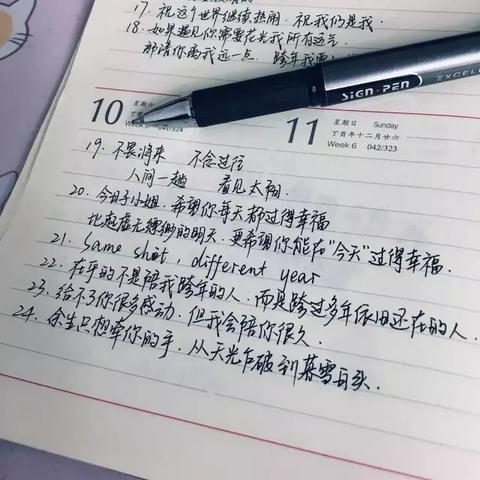 17. 祝这个世界继续热闹. 祝我们是我.
18. 如果遇见你需要花光我所有运气.
那请你离我远一点. 跨年我要
SIGN·PEN
EXCEL
10 星期六
Week 6 041/324
11 星期日 Sunday
丁酉年十二月廿六
Week 6 042/323
19. 不畏将来 不念过往
人间一趟 看见太阳.
20. 今日子小姐. 希望你每天都过得幸福
比起虚无缥缈的明天. 更希望你能在“今天”过得幸福.
21. Same shot, different year
22. 在乎的不是陪我跨年的人. 而是跨过多年依旧还在的人.
23. 给不了你很多感动. 但我会陪你很久.
24. 余生只想牵你的手. 从天光乍破到暮雪白头.